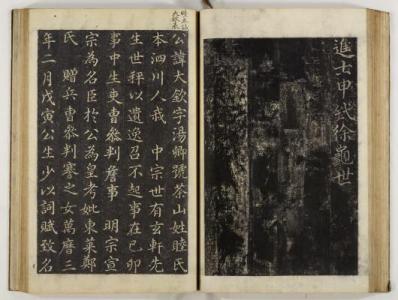 進士申徐世
公諱大欽字湯卿號茶山姓睦氏
本泗川人我 中宗世有玄軒先
生世秤以遺逸召不起事在已卯
事中生吏曹參判詹事 明宗宣
宗為名臣於公為皇考妣東萊鄭
氏 贈兵曹參判謇之女萬曆三
年二月戊寅公生少以詞賦致名